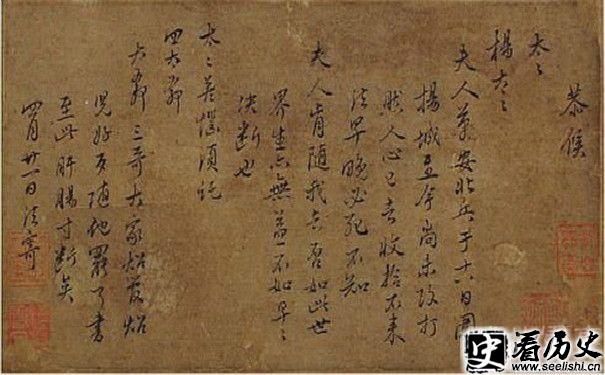 恭候
太々
楊太々
夫人萬安北兵于十八日圍
揚城至今尚未攻打
然人心已去收拾不来
法早晚必死不知
夫人肯随我去否如此世
界生亦無益不如早々
决断也
太々苦惱須托
四太爺
大爺三哥大家炤管炤
児好歹随他罷了書
至此肝腸寸断矣
四月廿一日法寄
史 看历史
www.seelishi.cn